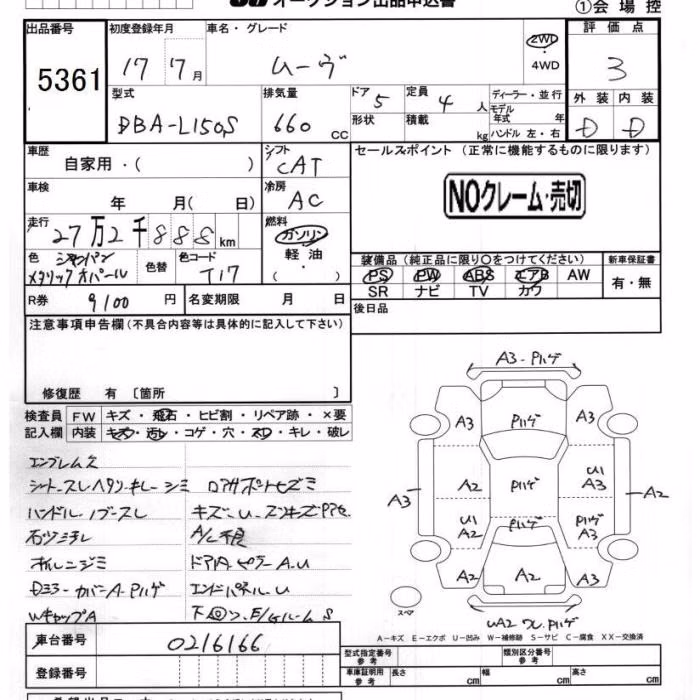 オークション出品申込書
①会場控
出品番号 5361
初度登録年月 17 7月
車名・グレード ムーヴ
2WD・4WD
評価点 3
型式 DBA-L150S
排気量 660 CC
ドア 5
形状
定員 4 人
積載 kg
ディーラー・並行
モデル年式 年
ハンドル 左・右
外装 D
内装 D
車歴 自家用・( )
シフト CAT
セールスポイント (正常に機能するものに限ります)
NOクレーム・売切
車検 年 月( 日)
冷房 AC
走行 27万2千888km
燃料 ガソリン 軽油・( )
色 シャンパンメタリックオパール
色替
色コード T17
装備品(純正品に限り○をつけてください)
新車保証書
PS PW ABS エアB AW
有・無
SR ナビ TV カワ
R券 9100 円
名変期限 月 日
後日品
注意事項申告欄(不具合内容等は具体的に記入して下さい)
修復歴 有〔箇所 〕
検査員記入欄
FW キズ・飛石・ヒビ割・リペア跡・×要
内装 キズ・汚レ・コゲ・穴・スレ・キレ・破レ
エンブレムズ
シートスレヘタリ・キレ・シミ
ハンドル・ノブスレ
A/C不良
オルニジミ
ドア内ピラーA.U
エンドパネル.U
WキャップA
A3-Pハゲ
A3 Pハゲ A3
A3 A2 Pハゲ U1 A3 A2
U1 A2 Pハゲ Pハゲ A3
A2 A2 A3
スペア
A-キズ E-エクボ U-凹み W-補修跡 S-サビ C-腐食 XX-交換済
車台番号 0216166
登録番号
型式指定番号 参考
類別区分番号 参考
車庫証明用 参考 長さ cm 幅 cm 高さ cm